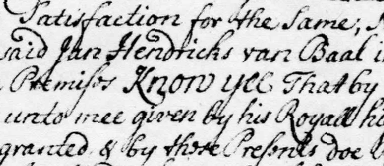 Satisfaction for the Same;
said Jan Hendricks van Baal
Premises Know yee That by
unto mee given by his Royall
granted & by these Presents doe